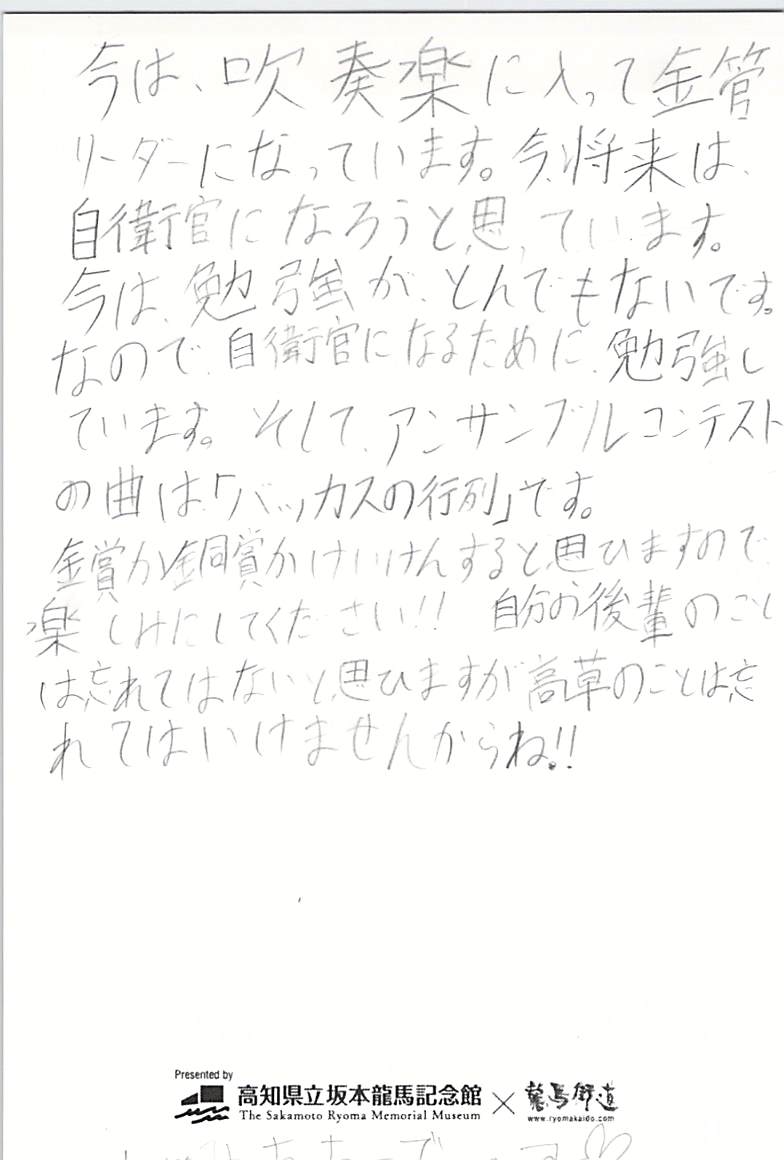 今は、吹奏楽に入って金管
リーダーになっています。今、将来は、
自衛官になろうと、思っています。
今は、勉強が、とんでもないです。
なので、自衛官になるために、勉強し
ています。そして、アンサンブルコンテスト
の曲は、「バッカスの行列」です。
金賞か銅賞かけいけんすると、思ひますので、
楽しみにしてください!! 自分の後輩のこと
は、忘れてはないと、思ひますが高草のことは、忘
れてはいけませんからね!!
Presented by
高知県立坂本龍馬記念館 × 龍馬街道
The Sakamoto Ryoma Memorial Museum
www.ryomakaido.com